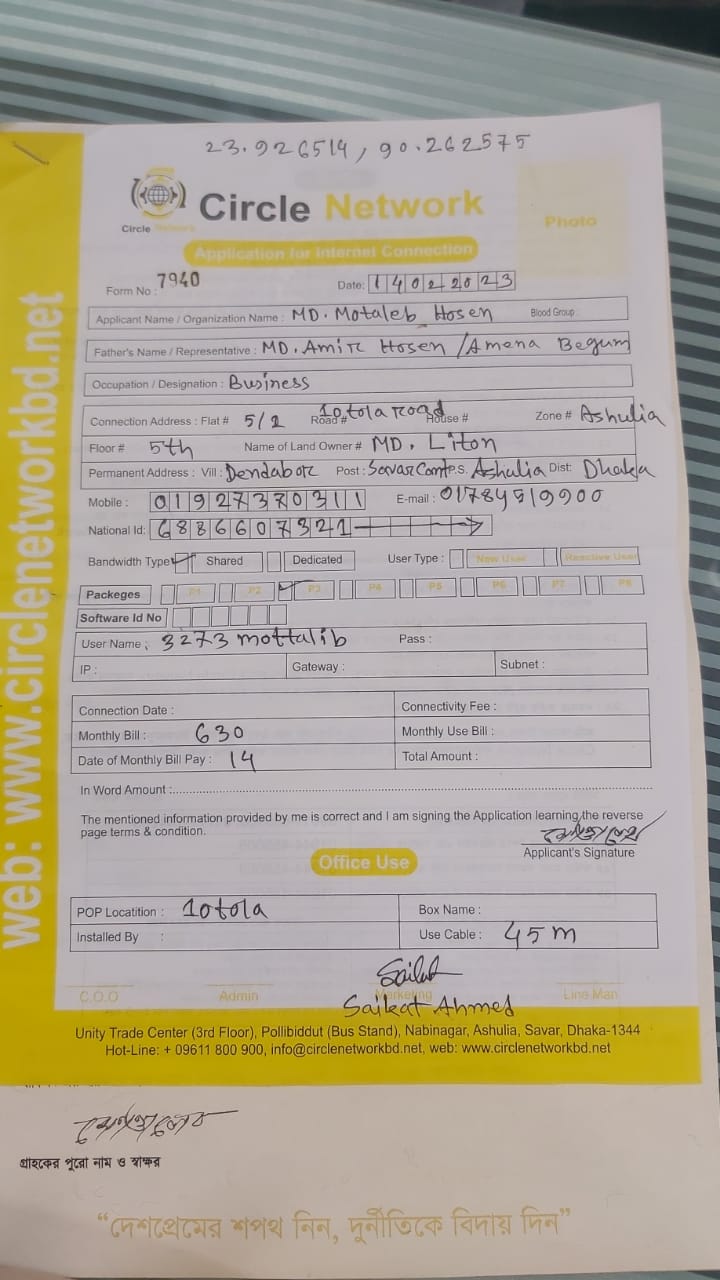 23.926514, 90.262575
Circle Network
Circle Network
Photo
Application for Internet Connection
Form No : 7940 Date: 14022023
Applicant Name / Organization Name : MD. Motaleb Hosen Blood Group :
Father's Name / Representative : MD. Amir Hosen / Amena Begum
Occupation / Designation : Business
Connection Address : Flat # 5/2 Road # 10tola road House # Zone # Ashulia
Floor # 5th Name of Land Owner # MD. Liton
Permanent Address : Vill : Dendabor Post : Savar Cant P.S. Ashulia Dist: Dhaka
Mobile : 01927370311 E-mail : 01784519900
National Id: 6886607321
Bandwidth Type Shared Dedicated User Type : New User Reactive User
Packeges P1 P2 P3 P4 P5 P6 P7 P8
Software Id No
User Name : 3273 mottalib Pass :
IP : Gateway : Subnet :
Connection Date : Connectivity Fee :
Monthly Bill : 630 Monthly Use Bill :
Date of Monthly Bill Pay : 14 Total Amount :
In Word Amount :
The mentioned information provided by me is correct and I am signing the Application learning the reverse
page terms & condition.
Applicant's Signature
Office Use
POP Locatition : 10tola Box Name :
Installed By : Use Cable : 45m
C.O.O Admin Marketing Line Man
Saikat Ahmed
Unity Trade Center (3rd Floor), Pollibiddut (Bus Stand), Nabinagar, Ashulia, Savar, Dhaka-1344
Hot-Line: + 09611 800 900, info@circlenetworkbd.net, web: www.circlenetworkbd.net
web: www.circlenetworkbd.net
গ্রাহকের পুরো নাম ও স্বাক্ষর
“দেশপ্রেমের শপথ নিন, দুর্নীতিকে বিদায় দিন”